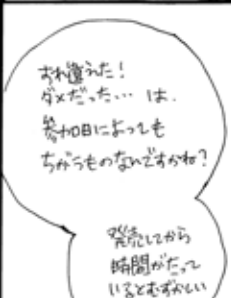 おれ違えた！
ダメだった… は、
参加日によっても
ちがうものなんですかね？
発売してから
時間がたって
いるとむずかしい